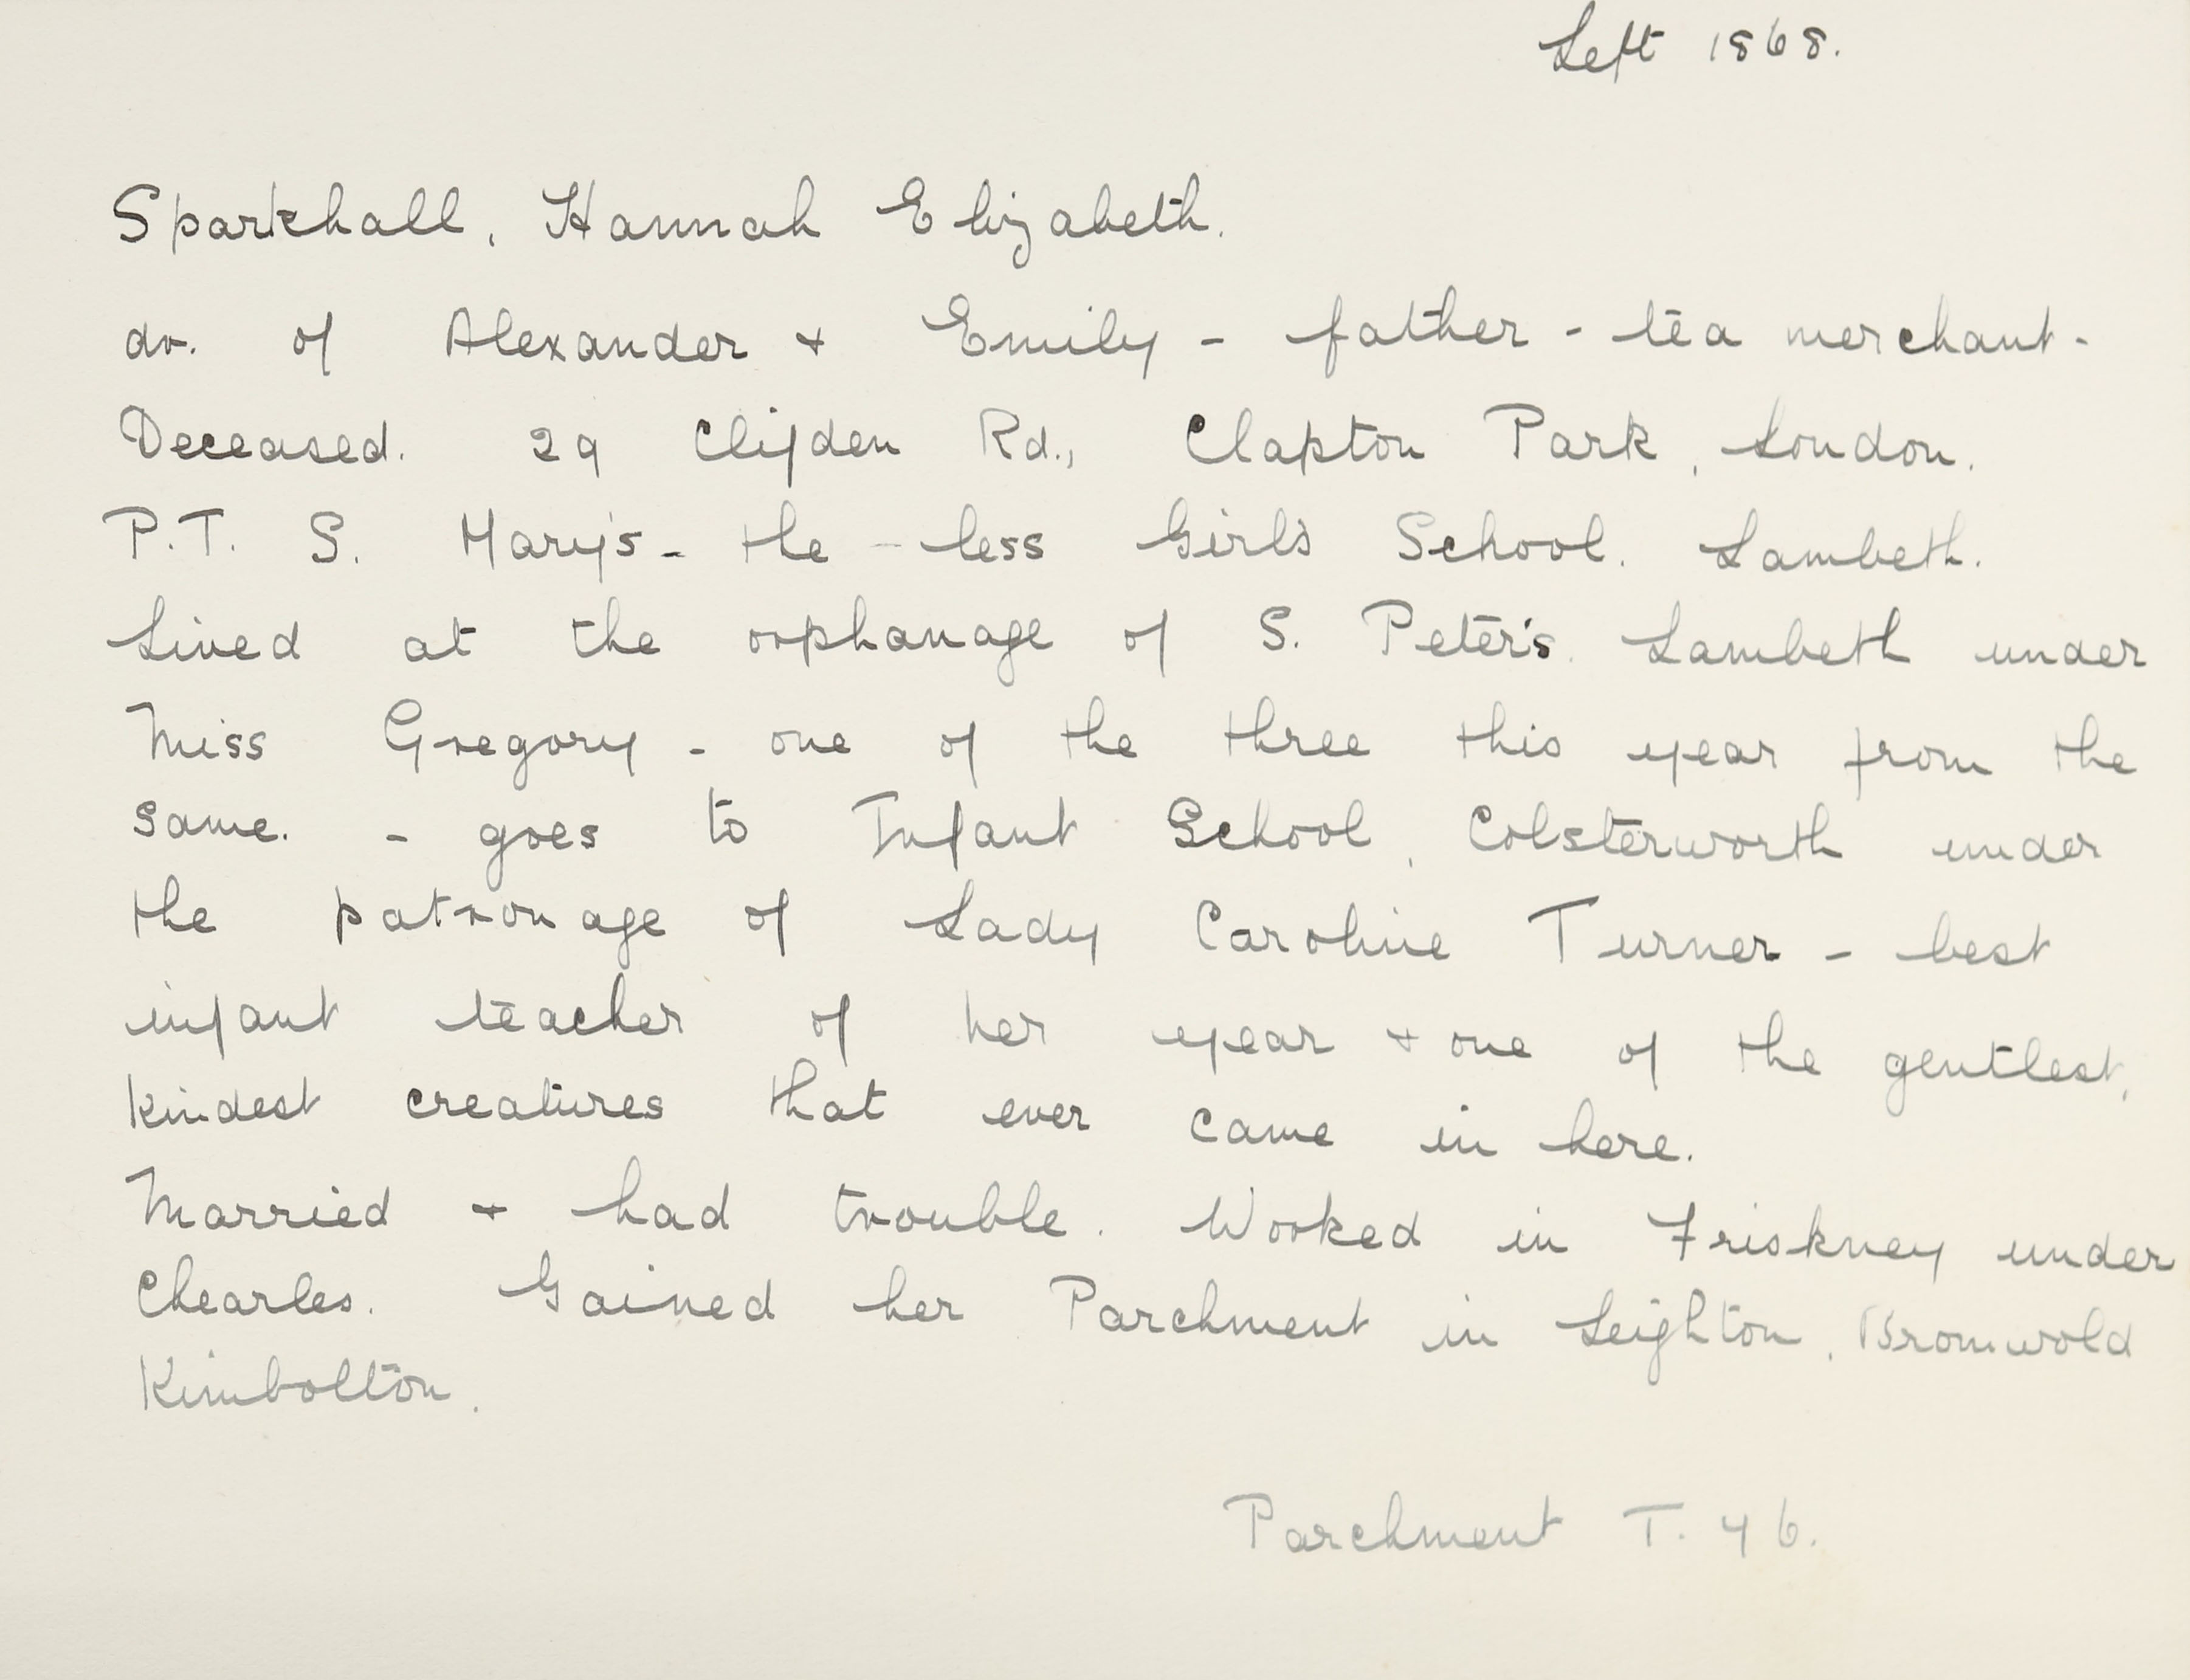 Left 1868.
Sparkhall, Hannah Elizabeth.
dr. of Alexander + Emily - father - tea merchant -
Deceased. 29 Clifden Rd., Clapton Park, London.
P.T. S. Mary's - the - less Girls School. Lambeth.
Lived at the orphanage of S. Peter's. Lambeth under
Miss Gregory - one of the three this year from the
same. - goes to Infant School, Colsterworth under
the patronage of Lady Caroline Turner - best
infant teacher of her year + one of the gentlest,
kindest creatures that ever came in here.
Married + had trouble. Worked in Friskney under
Chearles. Gained her Parchment in Leighton, Bromwold
Kimbolton.
Parchment T. 46.